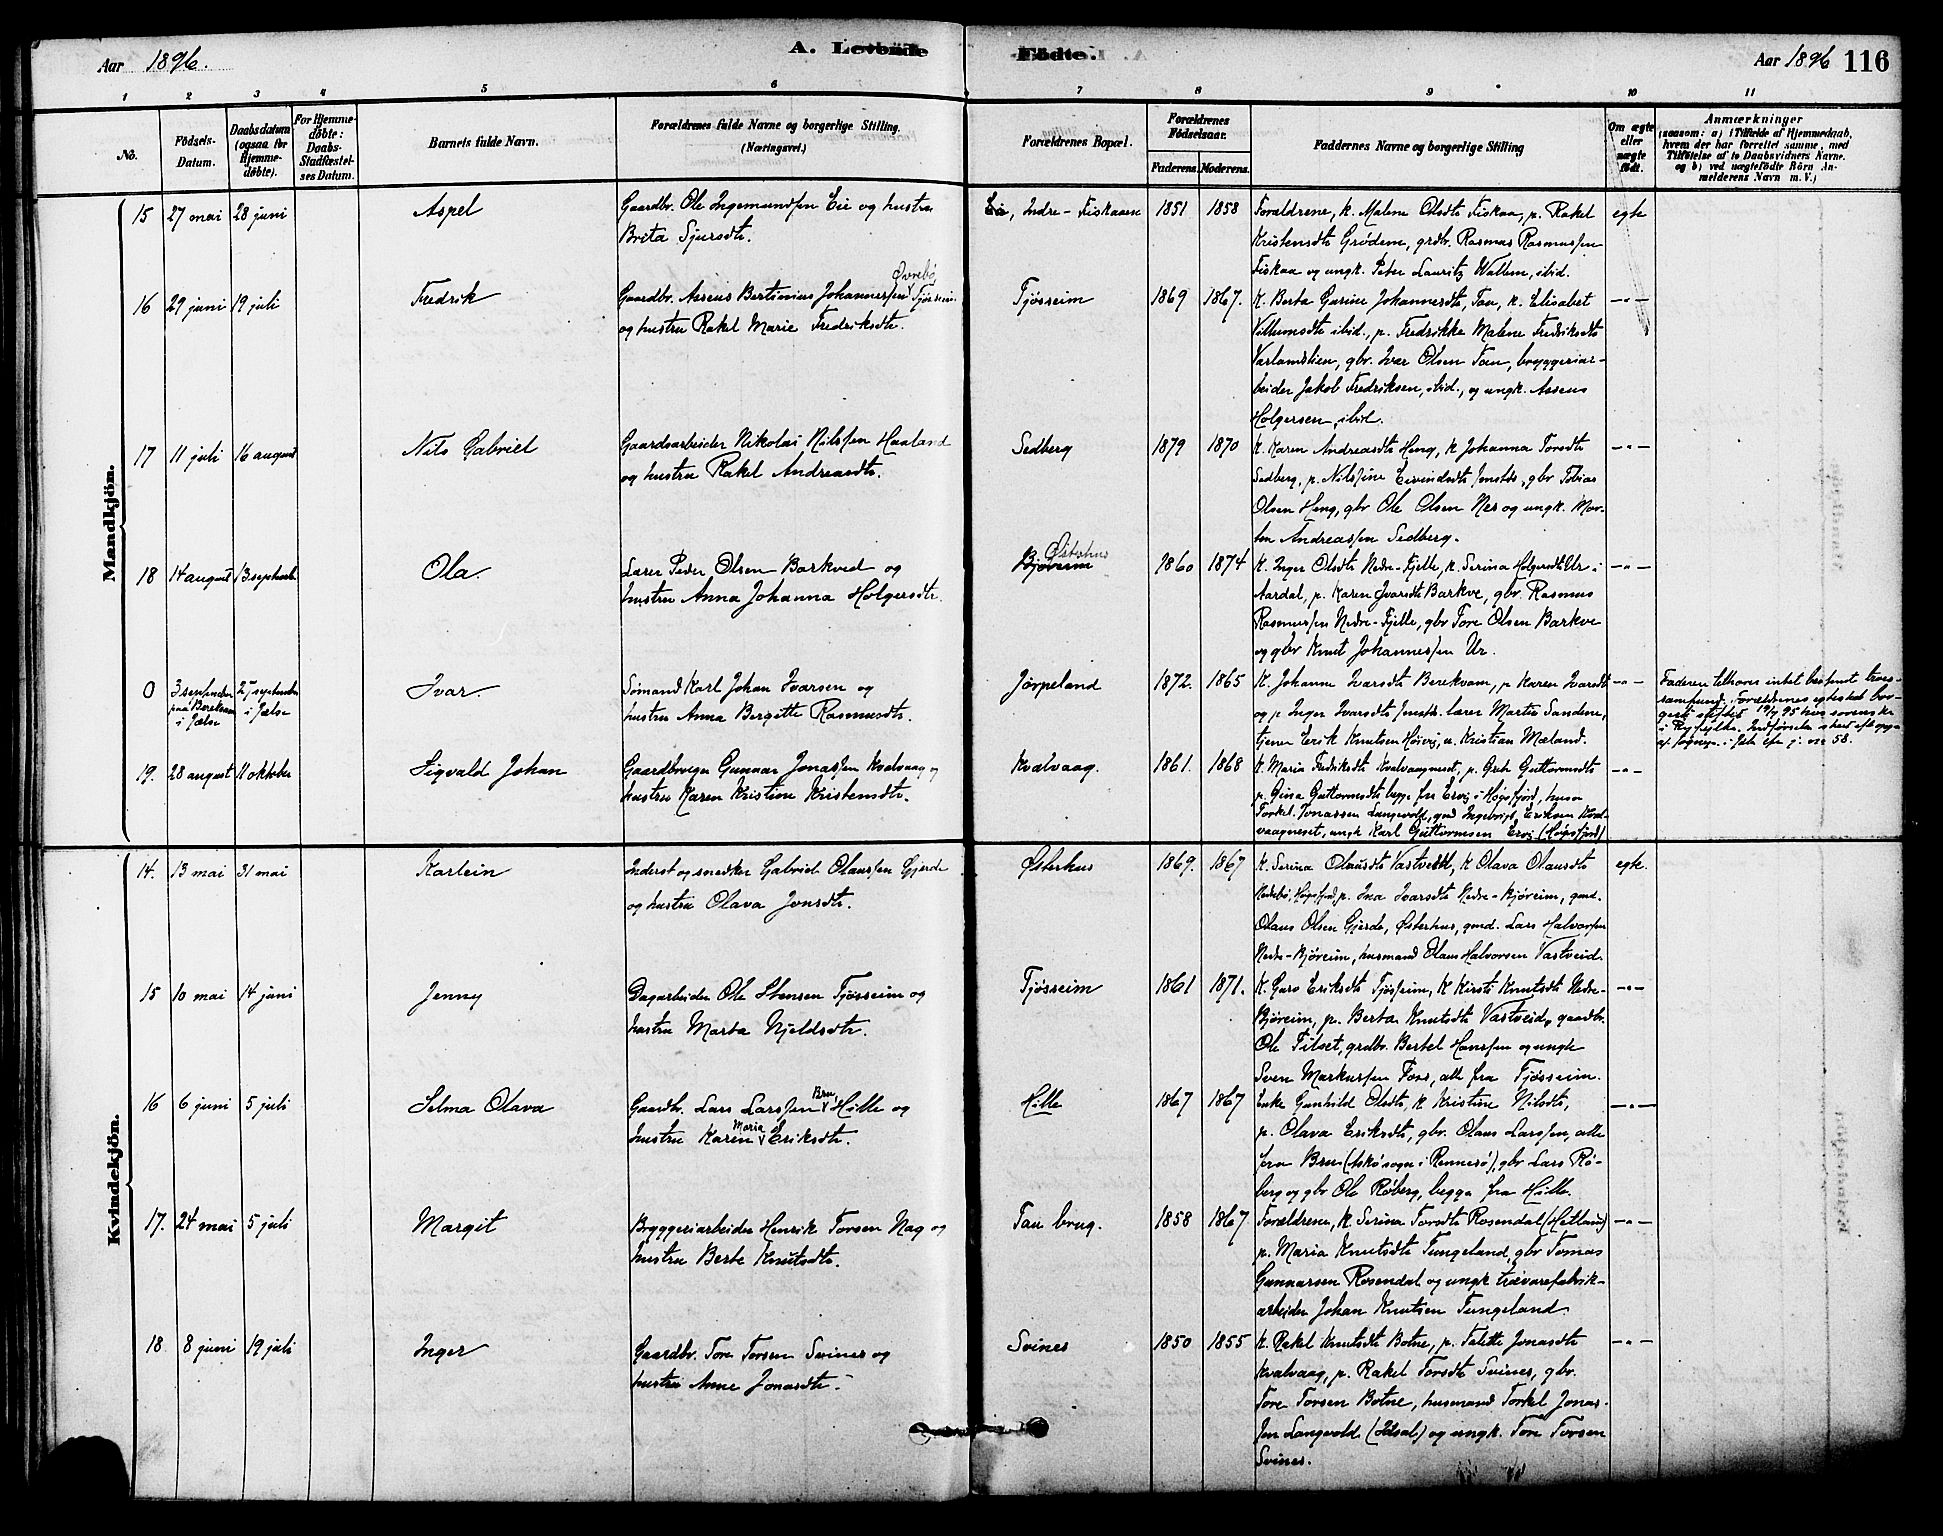 Aar 1896.
A. Levende
Fødte.
Aar 1896
116
1 2 3 4 5 6 7 8 9 10 11
No.
Fødsels-
Datum.
Daabsdatum
(ogsaa for
Hjemme-
døbte).
For Hjemme-
døbte:
Daabs-
Stadfæstel-
ses Datum.
Barnets fulde Navn.
Forældrenes fulde Navne og borgerlige Stilling.
(Næringsvei.)
Forældrenes Bopæl.
Forældrenes
Fødselsaar.
Faderens. Moderens.
Faddernes Navne og borgerlige Stilling
Om ægte
eller
uægte
født.
Anmærkninger
(saasom: a) i Tilfælde af Hjemmedaab,
hvem der har forrettet samme, med
Tilføielse af to Daabsvidners Navne.
og b) ved uægtefødte Börn An-
melderens Navn m. V.)
Mandkjön.
15 27 mai 28 juni Aspel
Gaardbr. Ole Ingemundsen Eie og hustru
Brita Sjursdtr.
Eie, Indre-Fiskaaen 1851 1858
Forældrene, k. Malene Olsdtr Fiskaa, p. Rakel
Kristensdtr Grødem, grdbr. Rasmus Rasmussen
Fiskaa og ungk. Peter Lauritz Wallem, ibid.
egte
16 29 juni 19 juli Fredrik
Øvrebø
Gaardbr. Asseus Bertinius Johannessen Tjøsseim
og hustru Rakel Marie Fredriksdtr.
Tjøsseim 1869 1867.
K. Berta Gurine Johannesdtr, Tau, k. Elisabet
Villumsdtr ibid., p. Fredrikke Malene Fredriksdtr
Varlandslien, gbr. Ivar Olsen Tau, bryggeriar-
beider Jakob Fredriksen, ibid., og ungk. Asseus
Holgersen, ibid.
—"—
17 11 juli 16 august Nils Gabriel
Gaardsarbeider Nikolai Nilssen Haaland
og hustru Rakel Andreasdtr.
Sedberg 1879 1870
K. Karen Andreasdtr Heng, k Johanna Torsdtr
Sedberg, p. Nilssine Eivindsdtr Jonstds, gbr Tobias
Olsen Heng, gbr Ole Olsen Nes og ungk. Mor-
ten Andreassen Sedberg.
—"—
18 14 august 13 septembr Ola.
Lærer Peder Olsen Barkved og
hustru Anna Johanna Holgersdtr.
Østerhus
Bjøreim 1860 1874
K. Inger Olsdtr Nedre-Fjelle, k. Serina Holgersdtr Ur i
Aardal, p. Karen Ivarsdtr Barkve, gbr. Rasmus
Rasmussen Nedre-Fjelle, gbr Tore Olsen Barkve
og gbr Knut Johannessen Ur.
—"—
0 3 september
paa Berekvam
i Jælse
27 september
i Jælse
Ivar.
Sømand Karl Johan Ivarsen og
hustru Anna Bergitte Rasmusdtr.
Jørpeland 1872. 1865
K. Johanne Ivarsdtr Berekvam, p Karen Ivarsdtr
og p Inger Ivarsdtr lærer Martin Sandene,
tjener Erik Knutsen Høivig, u. Kristian Mæland.
—"—
Faderen tilhører intet bestemt troes-
samfund. Forældrenes egteskab bor-
gerl. stiftet 19/7 95 hos sorenskr
i Ryfylke. Indførselen
58.
19. 28 august 11 oktober Sigvald Johan
Gaardbruger Gunnar Jonassen Kvalvaag og
hustru Karen Kristine Kristensdtr.
Kvalvaag. 1861. 1868
K. Maria Fredriksdtr Kvalvaagneset, p. Grete Guttormsdtr
p. Gina Guttormsdtr begge fra Ervig i Høgsfjord, husm
Torkel Jonassen Langvold, gmd Ingebrigt Eriksen Kval-
vaagneset, ungk Karl Guttormsen Ervig (Høgsfjord)
—"—
Kvindekjön.
14. 13 mai 31 mai Karlein
Inderst og snedker Gabriel Olaussen Gjerde
og hustru Olava Jonsdtr.
Østerhus 1869. 1867
K. Serina Olausdtr Vastveidt, K Olava Olausdtr
Nedrebø, Høgsfjord p. Ina Ivarsdtr Nedre-Bjøreim, gmd.
Olaus Olsen Gjerde, Østerhus, gmd. Lars Halvorsen
Nedre-Bjøreim, husmand Olaus Halvorsen Vastveid.
egte.
15 10 mai 14 juni Jenny
Dagarbeider Ole Stensen Tjøsseim og
hustru Marta Njeldsdtr.
Tjøsseim 1861 1871.
K. Guro Eriksdtr Tjøsseim, K Kirsti Knutsdtr Nedre-
Bjøreim, p. Berta Knutsdtr Vastveid, gaardbr.
Ole Tilset, grdbr. Bertel Hanssen og ungk
Sven Markussen Foss, alle fra Tjøsseim.
—"—
16 6 juni 5 juli Selma Olava
Gaardbr. Lars Larssen Bru, Hille og
hustru Karen Maria Eriksdtr.
Hille 1867 1867
Enke Gunhild Olsdtr, K Kristine Nilsdtr,
p. Olava Eriksdtr, gbr. Olaus Larssen, alle
fra Bru (Askø sogn i Rennesø), gbr Lars Rø-
berg og gbr Ole Røberg, begge fra Hille.
—"—
17. 24 mai 5 juli Margit
Bryggeriarbeider Henrik Torsen Nag og
hustru Berte Knutsdtr.
Tau brug. 1858 1867
Forældrene, K. Serina Torsdtr Rosendal (Hetland)
p. Maria Knutsdtr Tungeland, gbr Tomas
Gunnarsen Rosendal og ungk trævarefabrik-
arbeider Johan Knutsen Tungeland
—"—
18 8 juni 19 juli Inger
Gaardbr. Tore Torsen Svines og
hustru Anne Jonasdtr.
Svines 1850 1855
K. Rakel Knutsdtr Botne, p. Talette Jonasdtr
Kvalvaag, p. Rakel Torsdtr Svines, gbr.
Tore Torsen Botne, husmand Torkel Jonas-
sen Langvold (Idsal) og ungk. Tore Torsen
Svines.
—"—